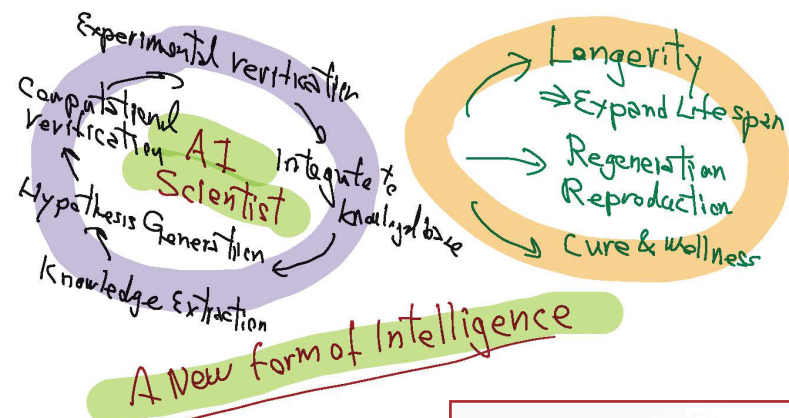 Experimental verification
Computational
verification
AI
Scientist
Integrate to
knowledge base
Hypothesis Generation
Knowledge Extraction
Longerity
⇒ Expand Lifespan
Regeneration
Reproduction
Cure & Wellness
A New form of Intelligence